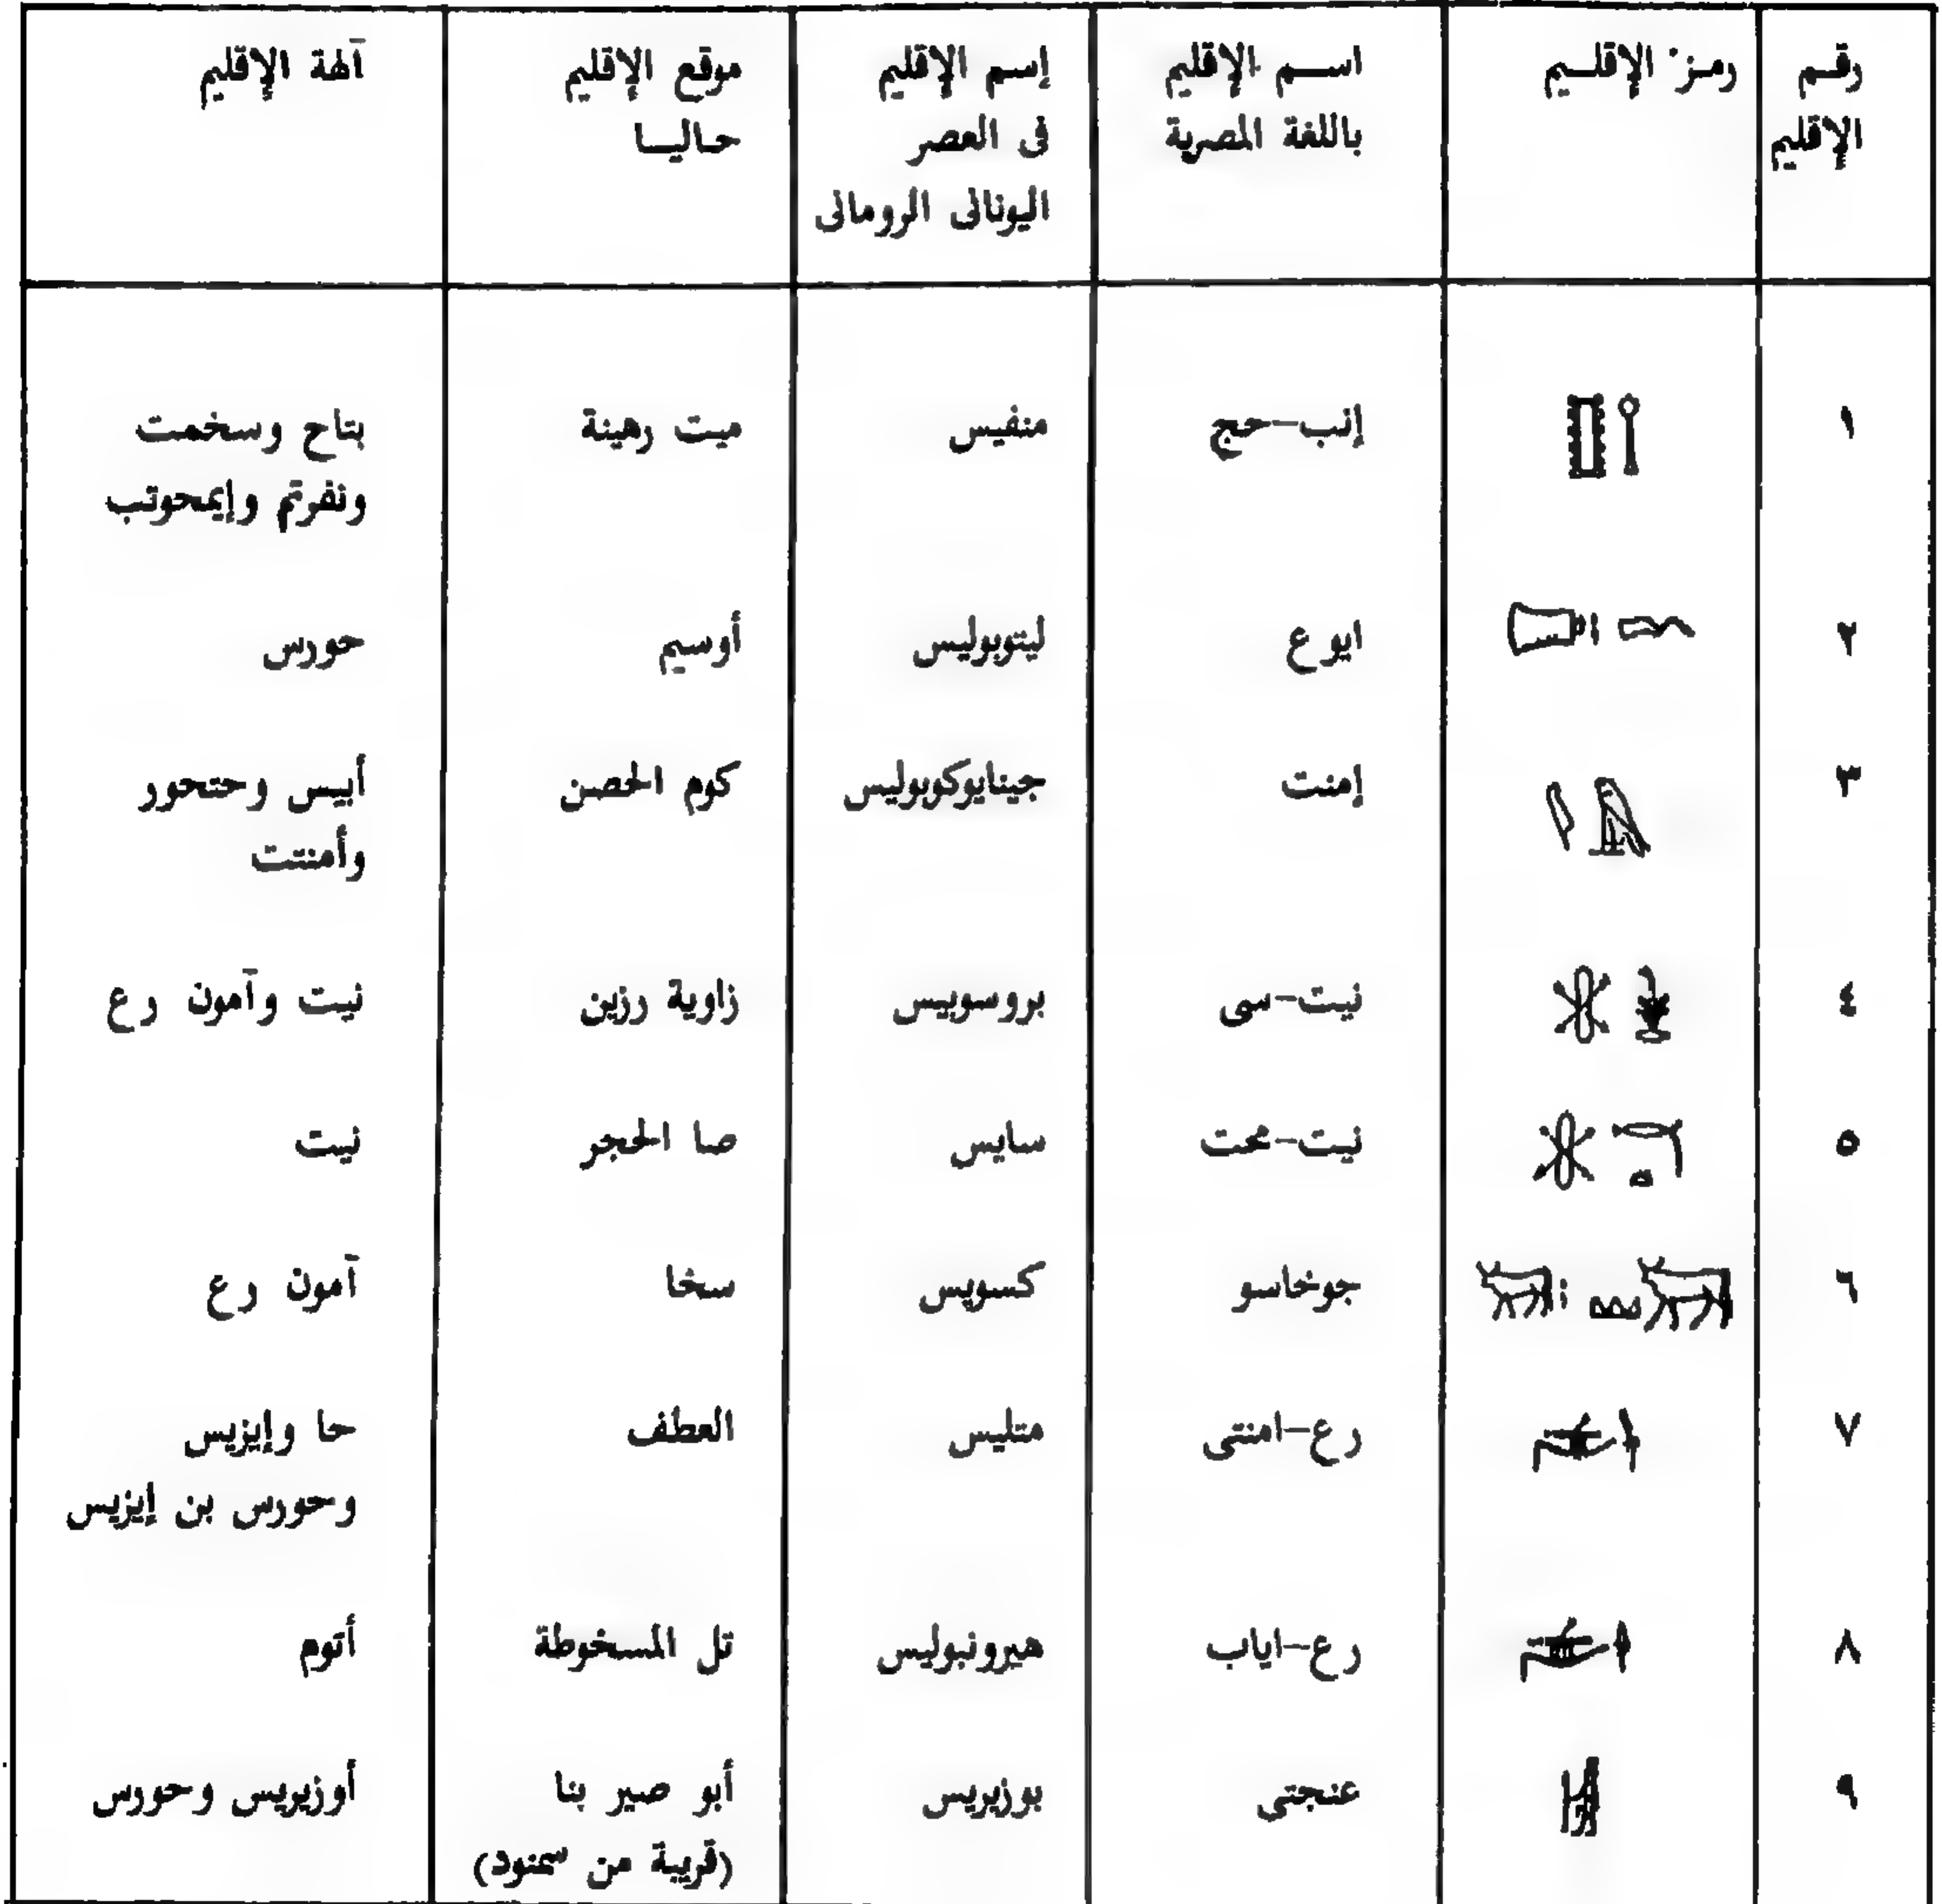 رقم الإقليم	رمز الإقليم	اسم الإقليم باللغة المصرية	إسم الإقليم فى العصر اليونانى الرومانى	موقع الإقليم حاليا	آلهة الإقليم
١	إنب-حج	منفيس	ميت رهينة	بتاح وسخمت ونفرتم وإيمحوتب
٢	ايوع	ليتوبوليس	أوسيم	حورس
٣	إمنت	جينايوكوبوليس	كوم الحصن	أبيس وحتحور وأمنتت
٤	نيت-سى	بروسوبيس	زاوية رزين	نيت وآمون رع
٥	نيت-محت	سايس	صا الحجر	نيت
٦	جوخاسو	كسويس	سخا	آمون رع
٧	رع-امنتى	متليس	العطف	حا وإيزيس وحورس بن إيزيس
٨	رع-اياب	هيرونبوليس	تل المسخوطة	أتوم
٩	عنجتى	بوزيريس	أبو صير بنا (قريبة من سمنود)	أوزيريس وحورس